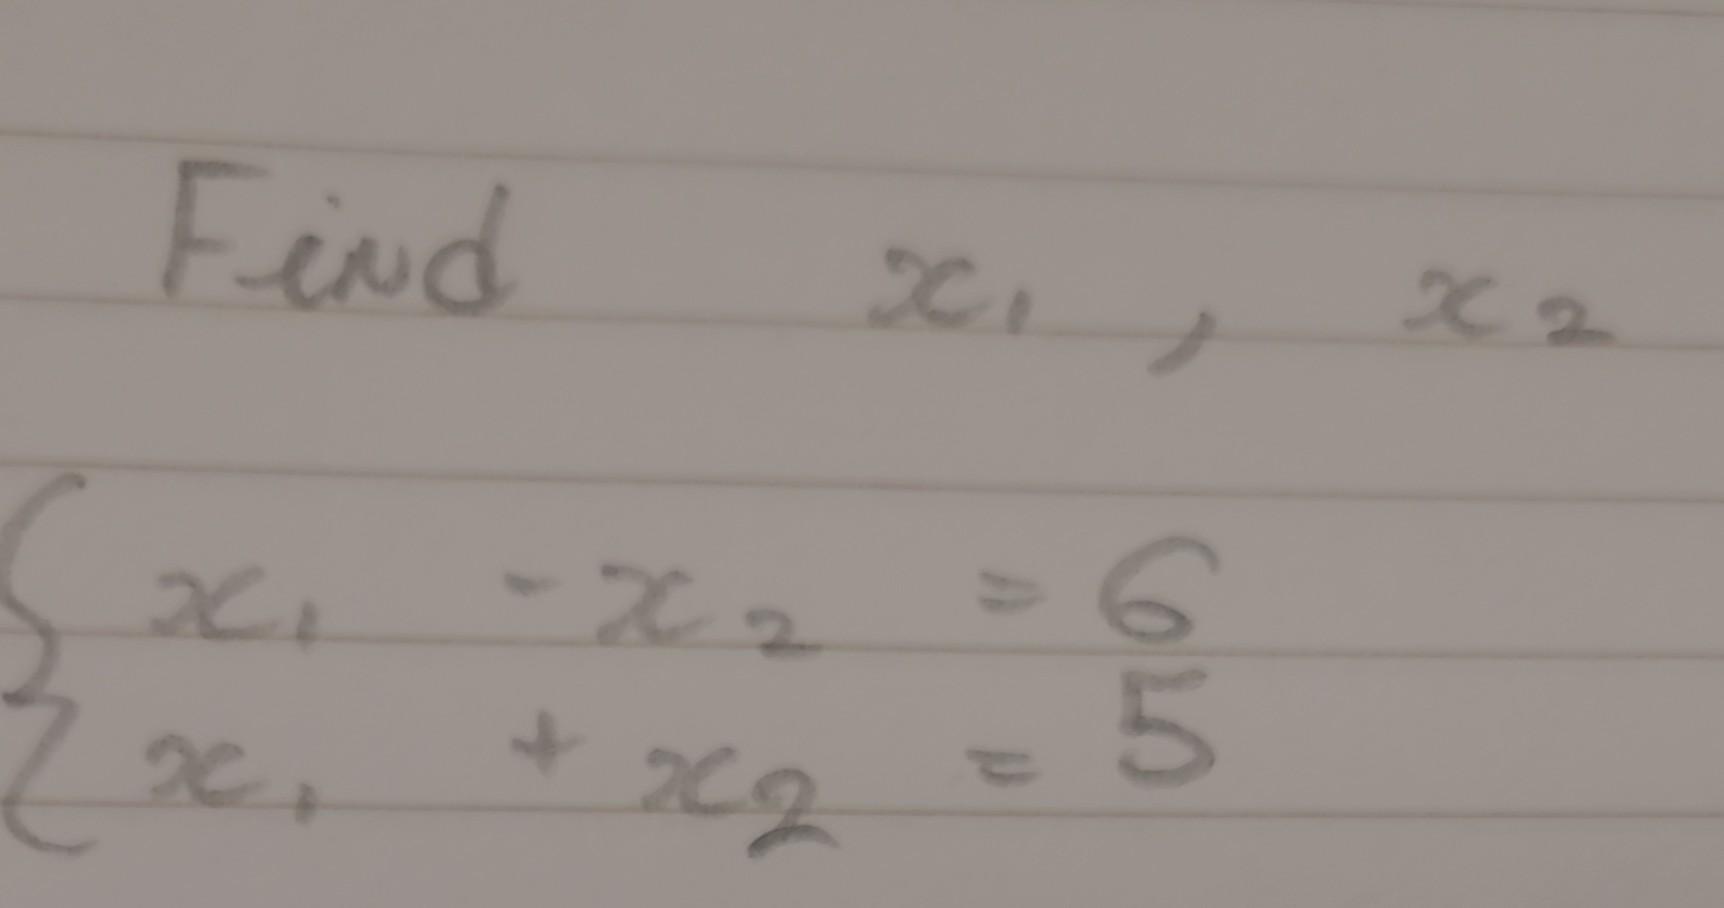 Find x₁ , x₂
x₁ - x₂ = 6
x₁ + x₂ = 5